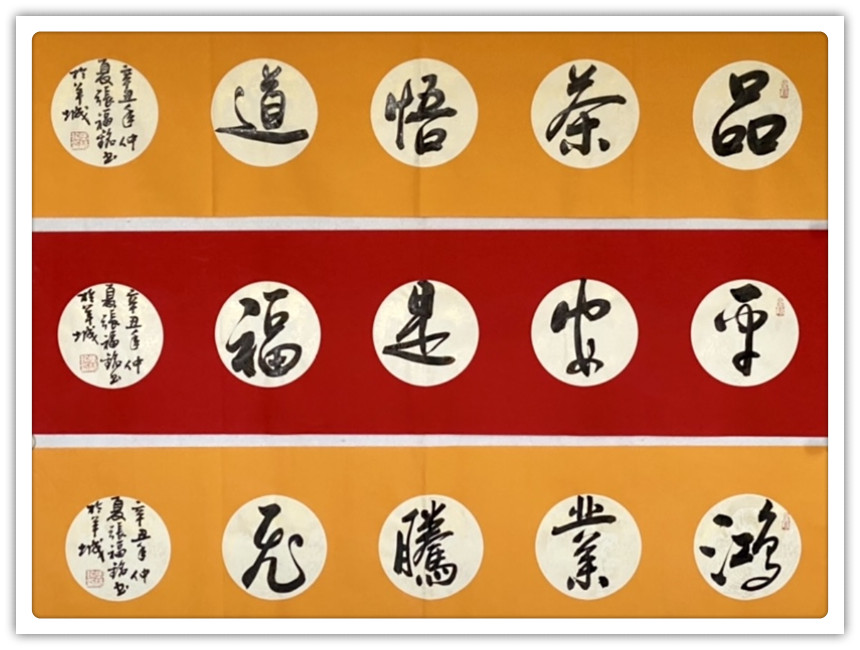 品茶悟道
辛丑年仲
夏張福銘書
於羊城
平安是福
辛丑年仲
夏張福銘書
於羊城
鴻業騰飛
辛丑年仲
夏張福銘書
於羊城